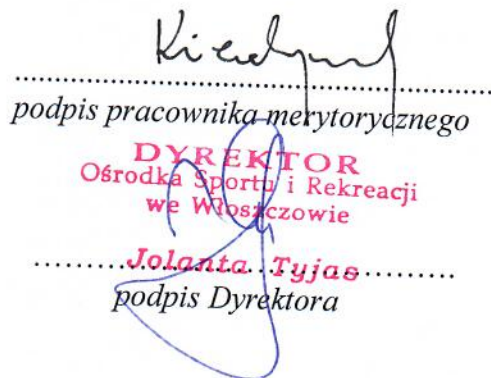 ....................................................................
podpis pracownika merytorycznego
DYREKTOR
Ośrodka Sportu i Rekreacji
we Włoszczowie
Jolanta Tyjas
....................................................................
podpis Dyrektora